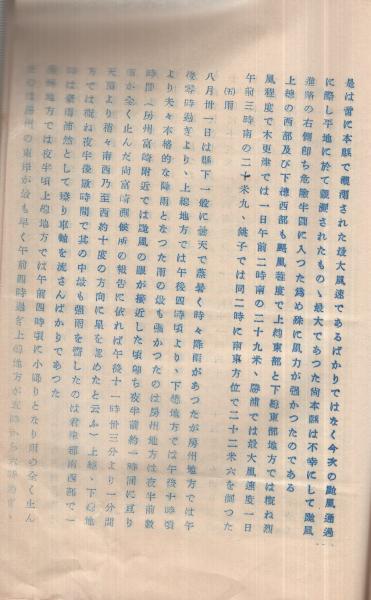 是は啻に本縣で觀測された最大風速であるばかりではなく今次の颱風通過
に際し平地に於て觀測されたもの丶最大であつた尚本縣は不幸にして颱風
進路の右側卽ち危險半圓に入つた爲め殊に風力が强かつたのである
上總の西部及び下總西部も颶風程度で上總東部と下總東部地方では概ね烈
風程度で木更津では一日午前二時南の二十九米、勝浦では最大風速度一日
午前三時南の二十米九、銚子では同二時に南東方位で二十二米六を測つた
(五)雨
八月卅一日は縣下一般に曇天で蒸暑く時々降雨があつたが房州地方では午
後零時過ぎより、上總地方では午後四時頃より、下總地方では午後十時頃
より夫々本格的な降雨となつた雨の最も强かつたのは房州地方は夜半前數
時間(房州富崎附近では颱風の眼が接近した頃卽ち夜半前約一時間に亘り
雨が全く止んだ向富崎測候所の報告に依れば午後十一時卅三分より一分間
天頂より稍々南西乃至西約十度の方向に星を認めたと云ふ)上總、下總地
方では概ね夜半後數時間で其の中最も强雨を齎したのは君津郡南西部で一
時は豪雨沛然として到り車軸を流さんばかりであつた
地方では夜半頃上總地方では午前四時頃に小降りとなり雨の全く止ん
の東岸が最も早く午前四時過ぎ上總地方が五時から六時